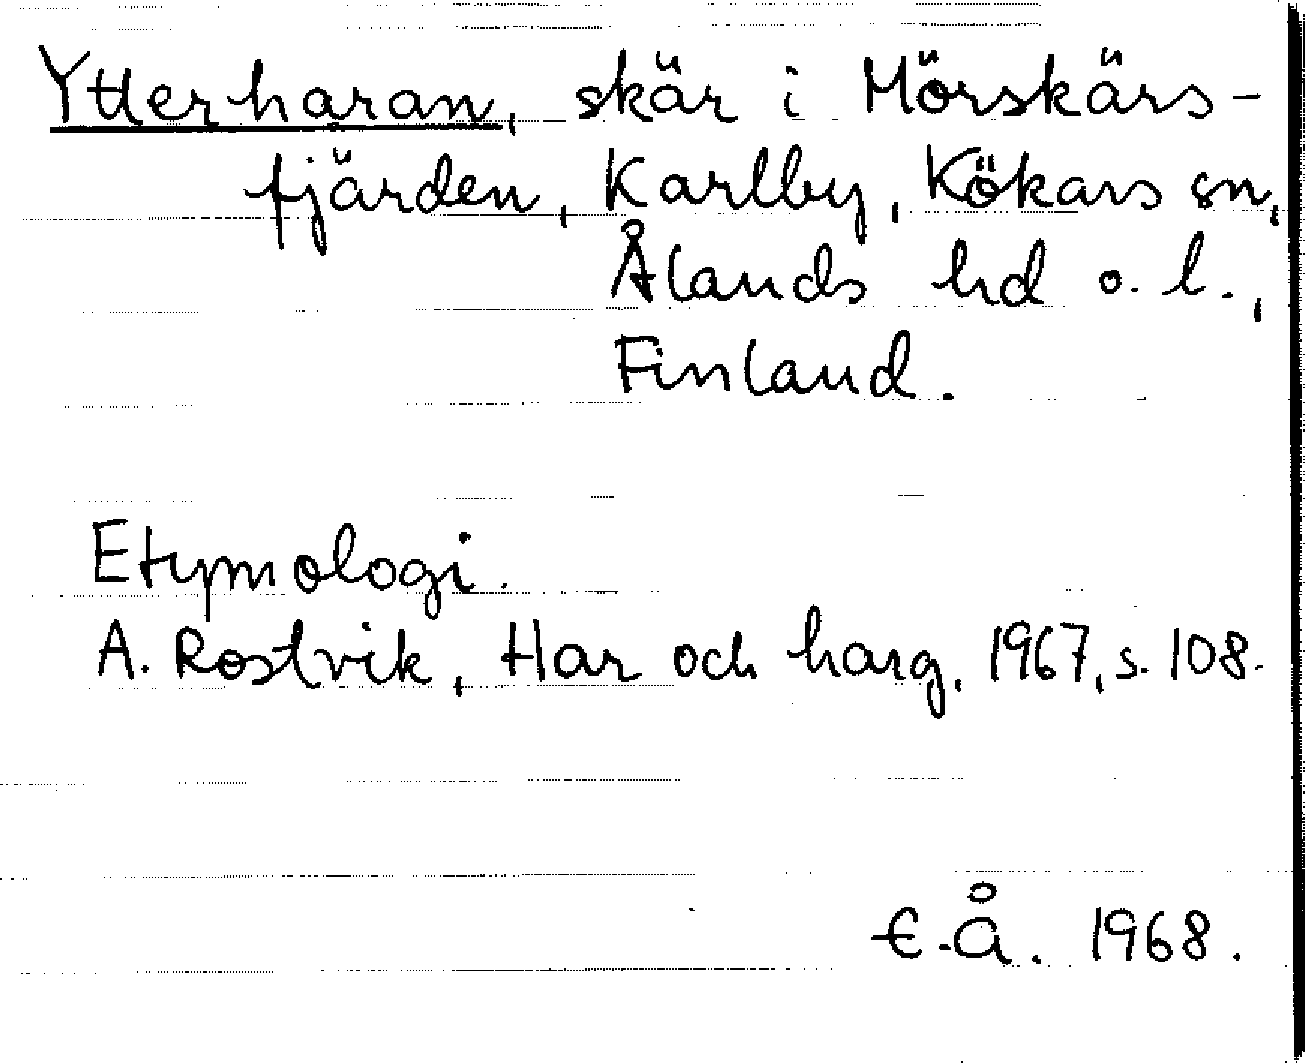 Ytterharan, skär i Mörskärs-
fjärden, Karlby, Kökars sn,
Ålands hd o. l.,
Finland.
Etymologi.
A. Rostvik, Har och harg, 1967, s. 108.
E.Å. 1968.